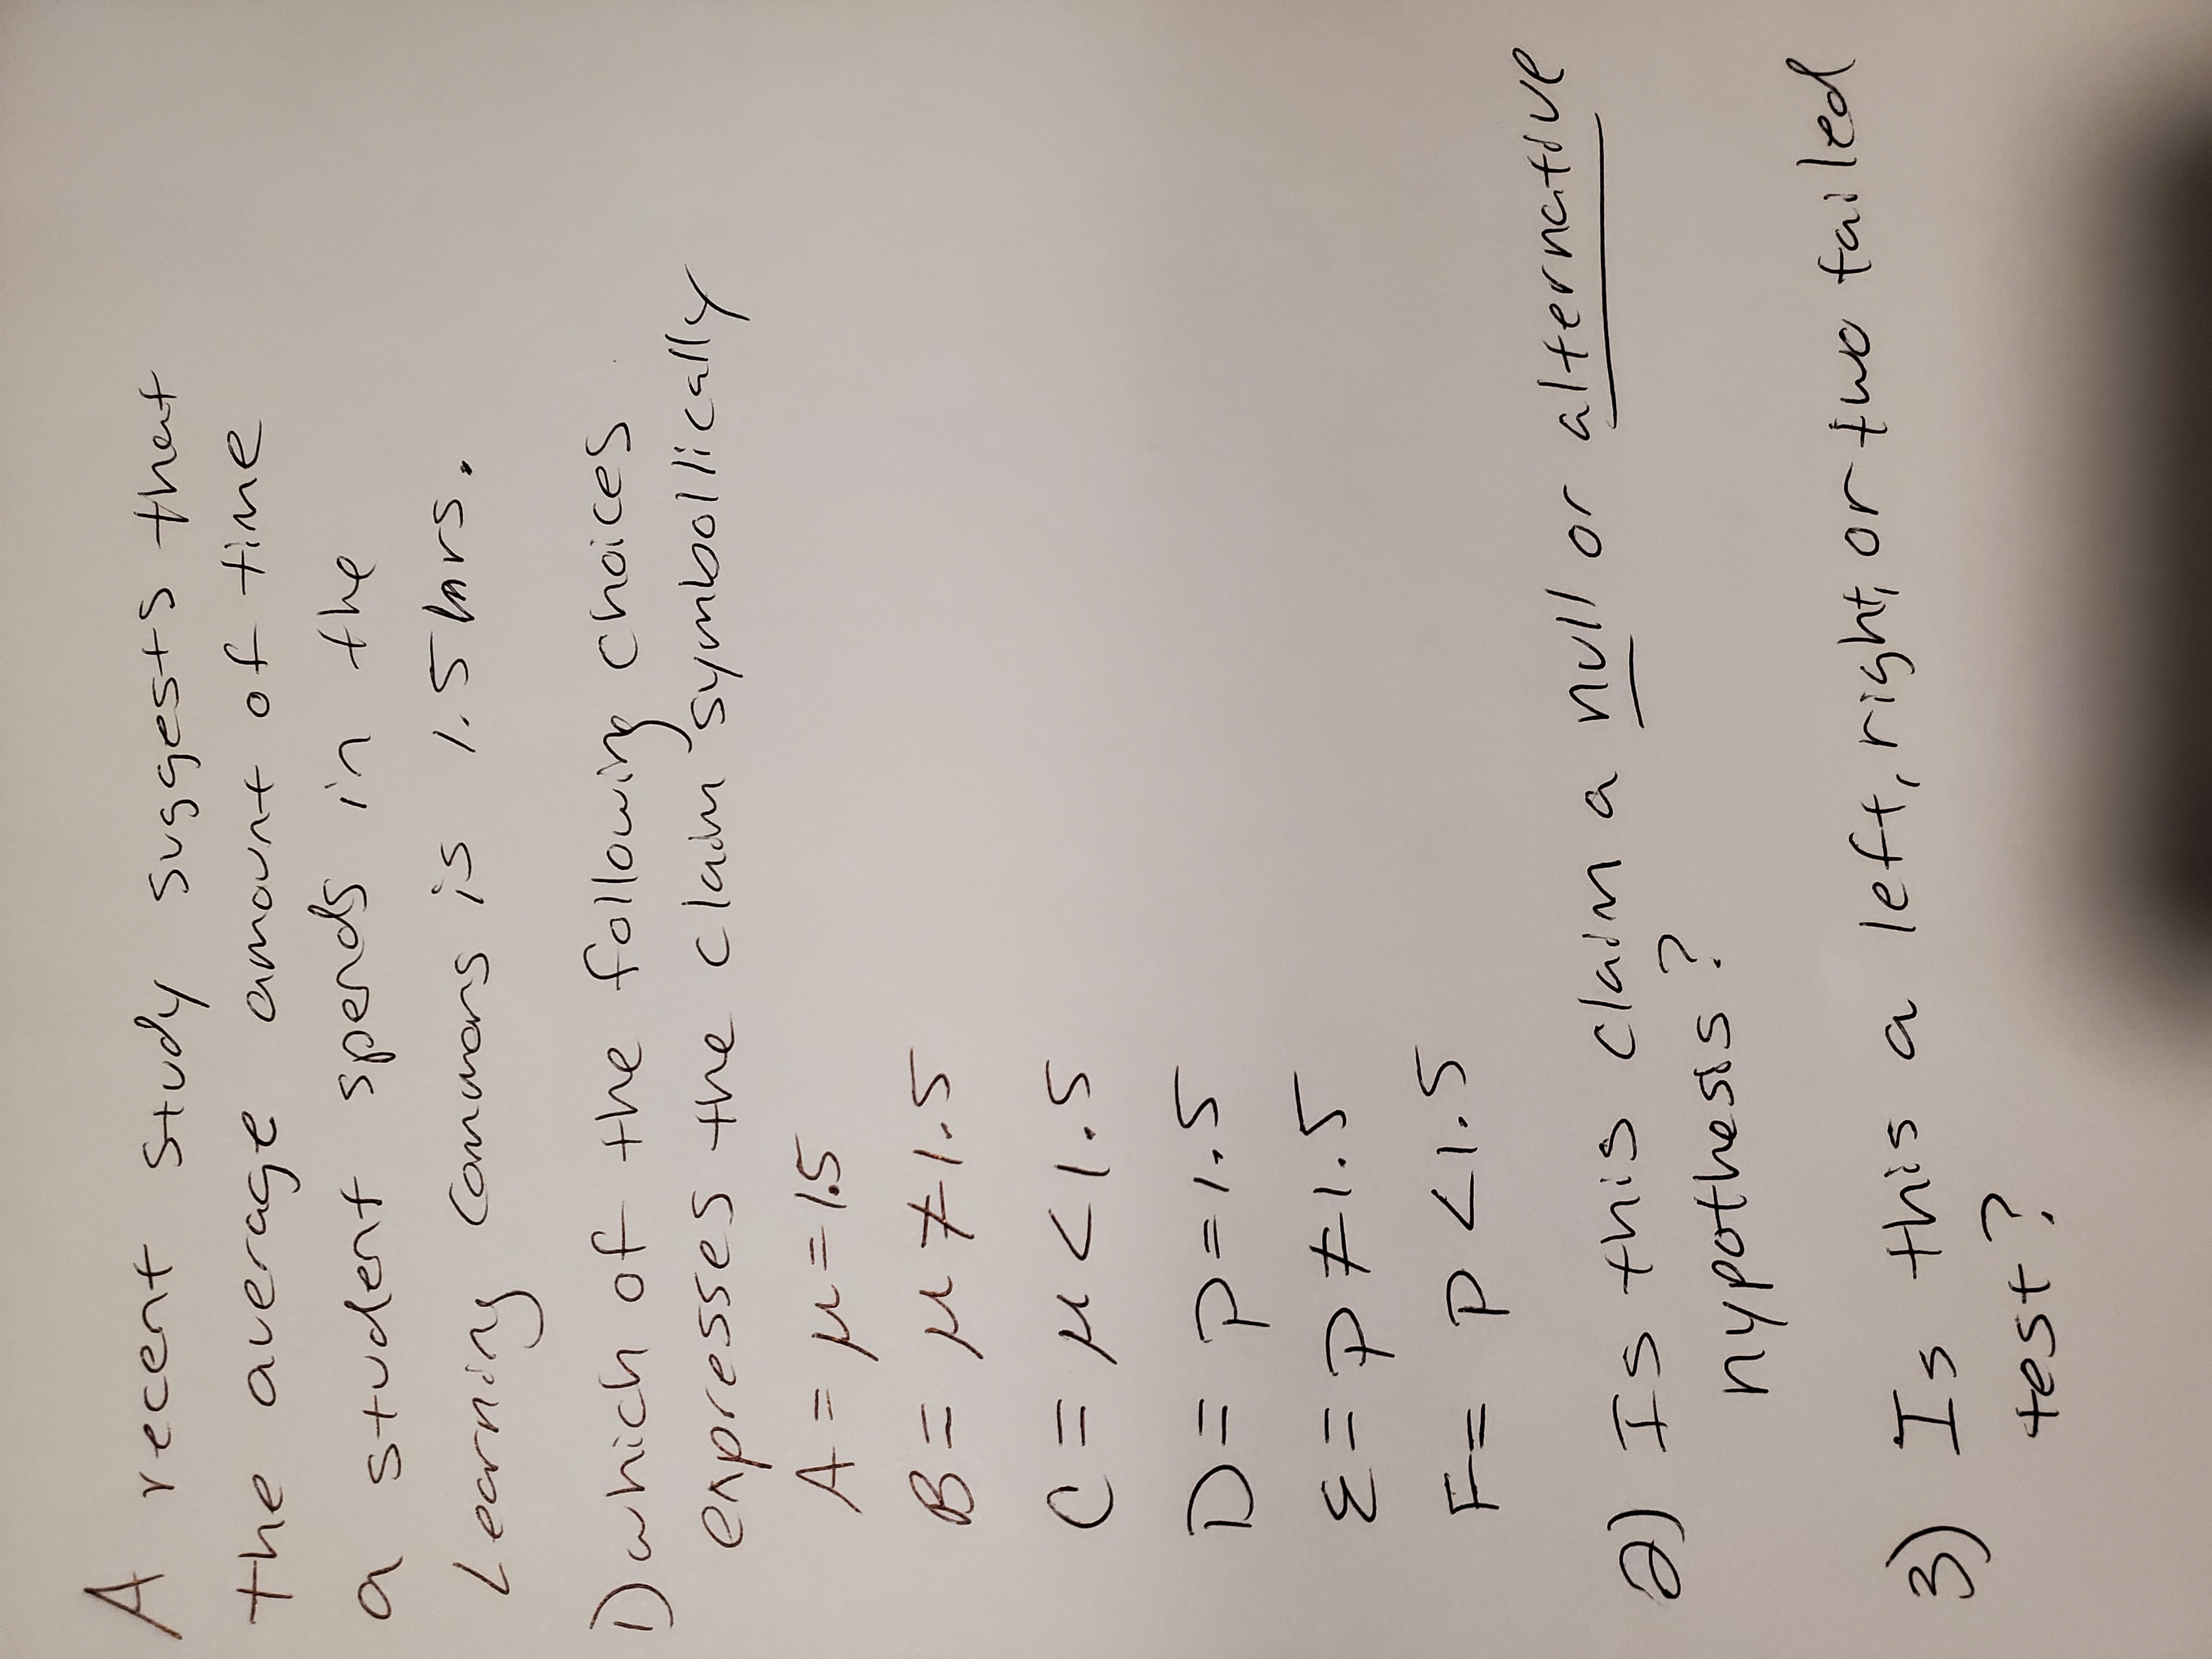 A recent study suggests that
the average amount of time
a student spends in the
Learning Commons is 1.5 hrs.
1) which of the following choices
expresses the claim symbollically
A = μ = 1.5
B = μ ≠ 1.5
C = μ < 1.5
D = p = 1.5
E = p ≠ 1.5
F = p < 1.5
2) Is this claim a null or alternative
hypothesis?
3) Is this a left, right, or two tailed
test?